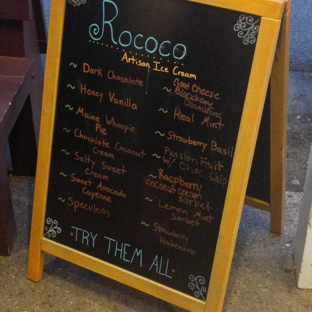 Rococo
Artisan Ice Cream
~ Dark Chocolate
~ Honey Vanilla
~ Maine Whoopie
Pie
~ Chocolate Coconut
Cream
~ Salty Sweet
Cream
~ Sweet Avocado
Cayenne
~ Speculoos
~ Goat Cheese
Blackberry
Chambord
~ Real Mint
~ Strawberry Basil
~ Passion Fruit
w/ Choc. Chip
~ Raspberry
Coconut-cream
Sorbet
~ Lemon Mint
Sorbet
~ Strawberry
Habanero
TRY THEM ALL